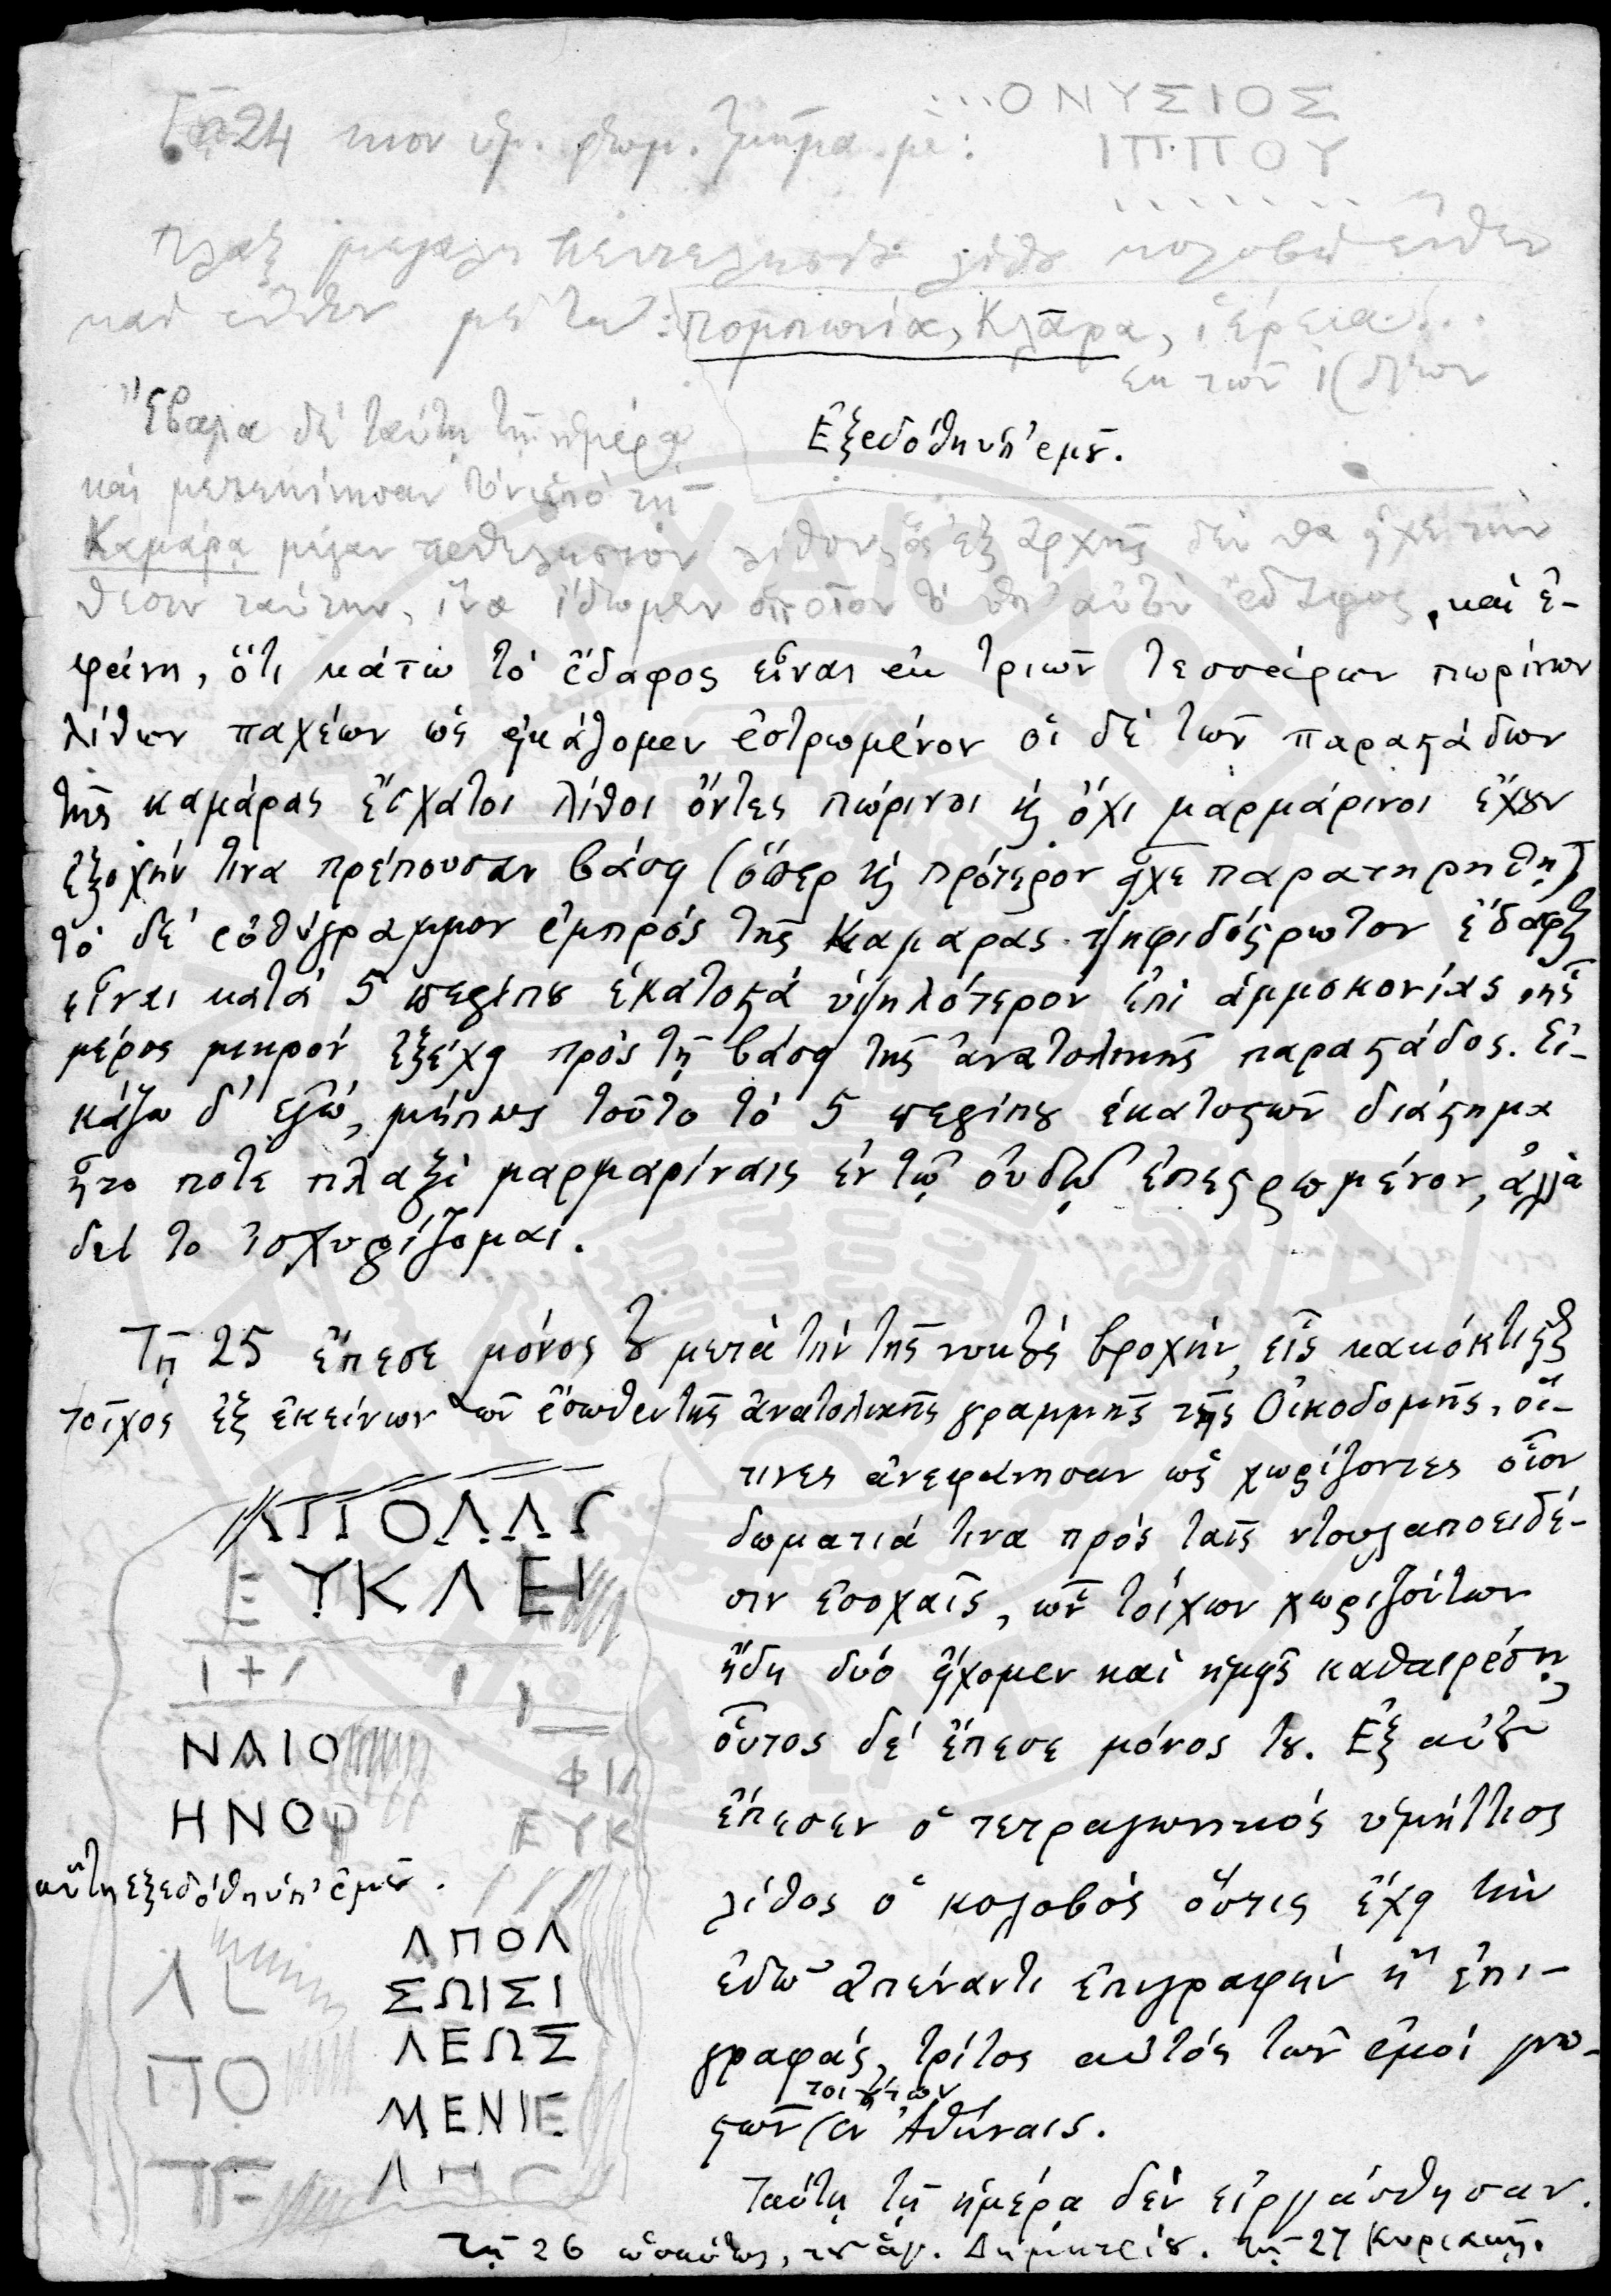 Τῇ 24 κιον ὑμ. ρωμ. τμῆμα μὲ:
...ΟΝΥΣΙΟΣ
ΙΠΠΟΥ
Πλὰξ μεγάλη πεντελησίου λίθου κολοβὴ ἔνθεν
καὶ ἔνθεν μὲ τὸ: πομπωνία, Κλᾶρα, ἱέρεια...
ἐκ τῶν ἰ(δ)ίων
Ἐξεδόθη ὑπ' ἐμοῦ.
Ἔβαλα δὲ ταύτῃ τῇ ἡμέρᾳ
καὶ μετεκίνησαν τὸν ὑπὸ τῇ
Καμάρᾳ μέγαν πεντελήσιον λίθον, ὃς ἐξ ἀρχῆς δὲν θὰ εἶχε τὴν
θέσιν ταύτην, ἵνα ἴδωμεν ὁποῖον τὸ ὑπ' αὐτὸν ἔδαφος, καὶ ἐ-
φάνη, ὅτι κάτω τὸ ἔδαφος εἶναι ἐκ τριῶν τεσσάρων πωρίνων
λίθων παχέων ὡς εἰκάζομεν ἐστρωμένον οἱ δὲ τῶν παραστάδων
τῆς καμάρας ἔσχατοι λίθοι ὄντες πώρινοι κ̀ ὄχι μαρμάρινοι ἔχουν
ἐξοχήν τινα πρέπουσαν βάσει (ὅπερ κ̀ πρότερον εἶχε παρατηρηθῆ)
τὸ δὲ εὐθύγραμμον ἐμπρὸς τῆς Καμάρας ψηφιδόστρωτον ἔδαφος
εἶναι κατὰ 5 περίπου ἑκατοστὰ ὑψηλότερον ἐπὶ ἀμμοκονίας ἧς
μέρος μικρὸν ἐξέχει πρὸς τῇ βάσει τῆς ἀνατολικῆς παραστάδος. Εἰ-
κάζω δ' ἐγώ, μήπως τοῦτο τὸ 5 περίπου ἑκατοστῶν διάστημα
ἦτο ποτε πλαξὶ μαρμαρίναις ἐν τῷ οὐδῷ ἐπεστρωμένον, ἀλλὰ
δὲ τὸ ἰσχυρίζομαι.
Τῇ 25 ἔπεσε μόνος του μετὰ τὴν τῆς νυκτὸς βροχήν, εἷς κακόκτιστος
τοῖχος ἐξ ἐκείνων τῶν ἔσωθεν τῆς ἀνατολικῆς γραμμῆς τῆς Οἰκοδομῆς, οἵ-
τινες ἀνεφάνησαν ὡς χωρίζοντες οἷον
δωμάτιά τινα πρὸς ταῖς ντουλαποειδέ-
σιν ἐσοχαῖς, ὧν τοίχων χωριζόντων
ἤδη δύο εἴχομεν καὶ ἡμεῖς καθαιρέσῃ
οὗτος δὲ ἔπεσε μόνος του. Ἐξ αὐτοῦ
ἔπεσεν ὁ τετραγωνικὸς ὑμήττιος
λίθος ὁ κολοβὸς ὅστις ἔχει τὴν
ἐδῶ ἀπέναντι ἐπιγραφὴν ἢ ἐπι-
γραφάς, τρίτος αὐτὸς τῶν ἐμοὶ γνω-
στῶν τοιούτων ἐν Ἀθήναις.
ΑΠΟΛΛΩ
ΕΥΚΛΕΙ
ΝΑΙΟ
ΗΝΟΦ
ΦΙΛ
ΕΥΚ
αὕτη ἐξεδόθη ὑπ' ἐμοῦ.
ΑΠΟΛ
ΣΩΙΣΙ
ΛΕΩΣ
ΜΕΝΙΕ
ΛΗΣ
ΛΙ
ΠΟ
ΤΕ
Ταύτῃ τῇ ἡμέρᾳ δὲν εἰργάσθησαν.
Τῇ 26 ὡσαύτως, τοῦ ἁγ. Δημητρίου. τῇ 27 Κυριακῇ.